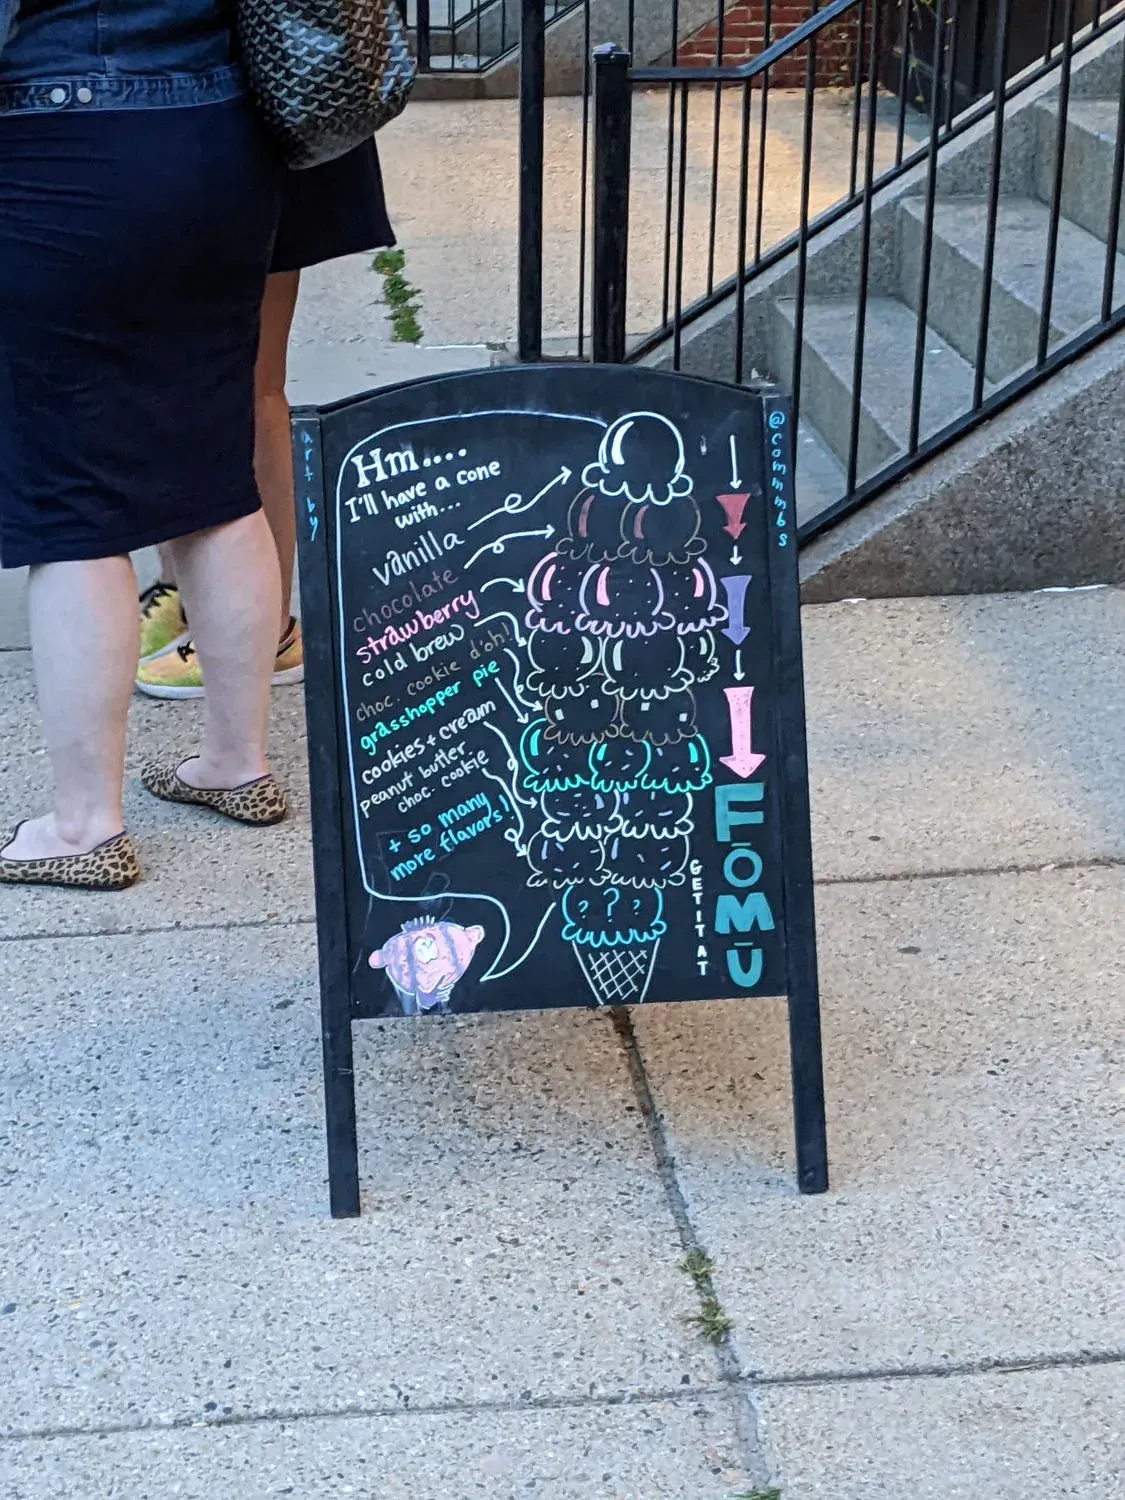 Hm....
I'll have a cone
with...
vanilla
chocolate
strawberry
cold brew
choc. cookie d'oh!
grasshopper pie
cookies + cream
Peanut butter
choc. cookie
+ so many
more flavors!
? ? ?
GET IT AT
FŌMŪ
art by
@commmbs